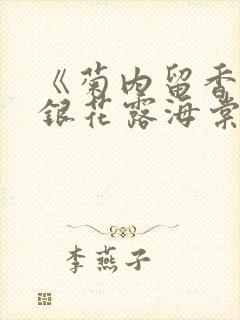 《菊内留香
銀花露海棠
李燕子